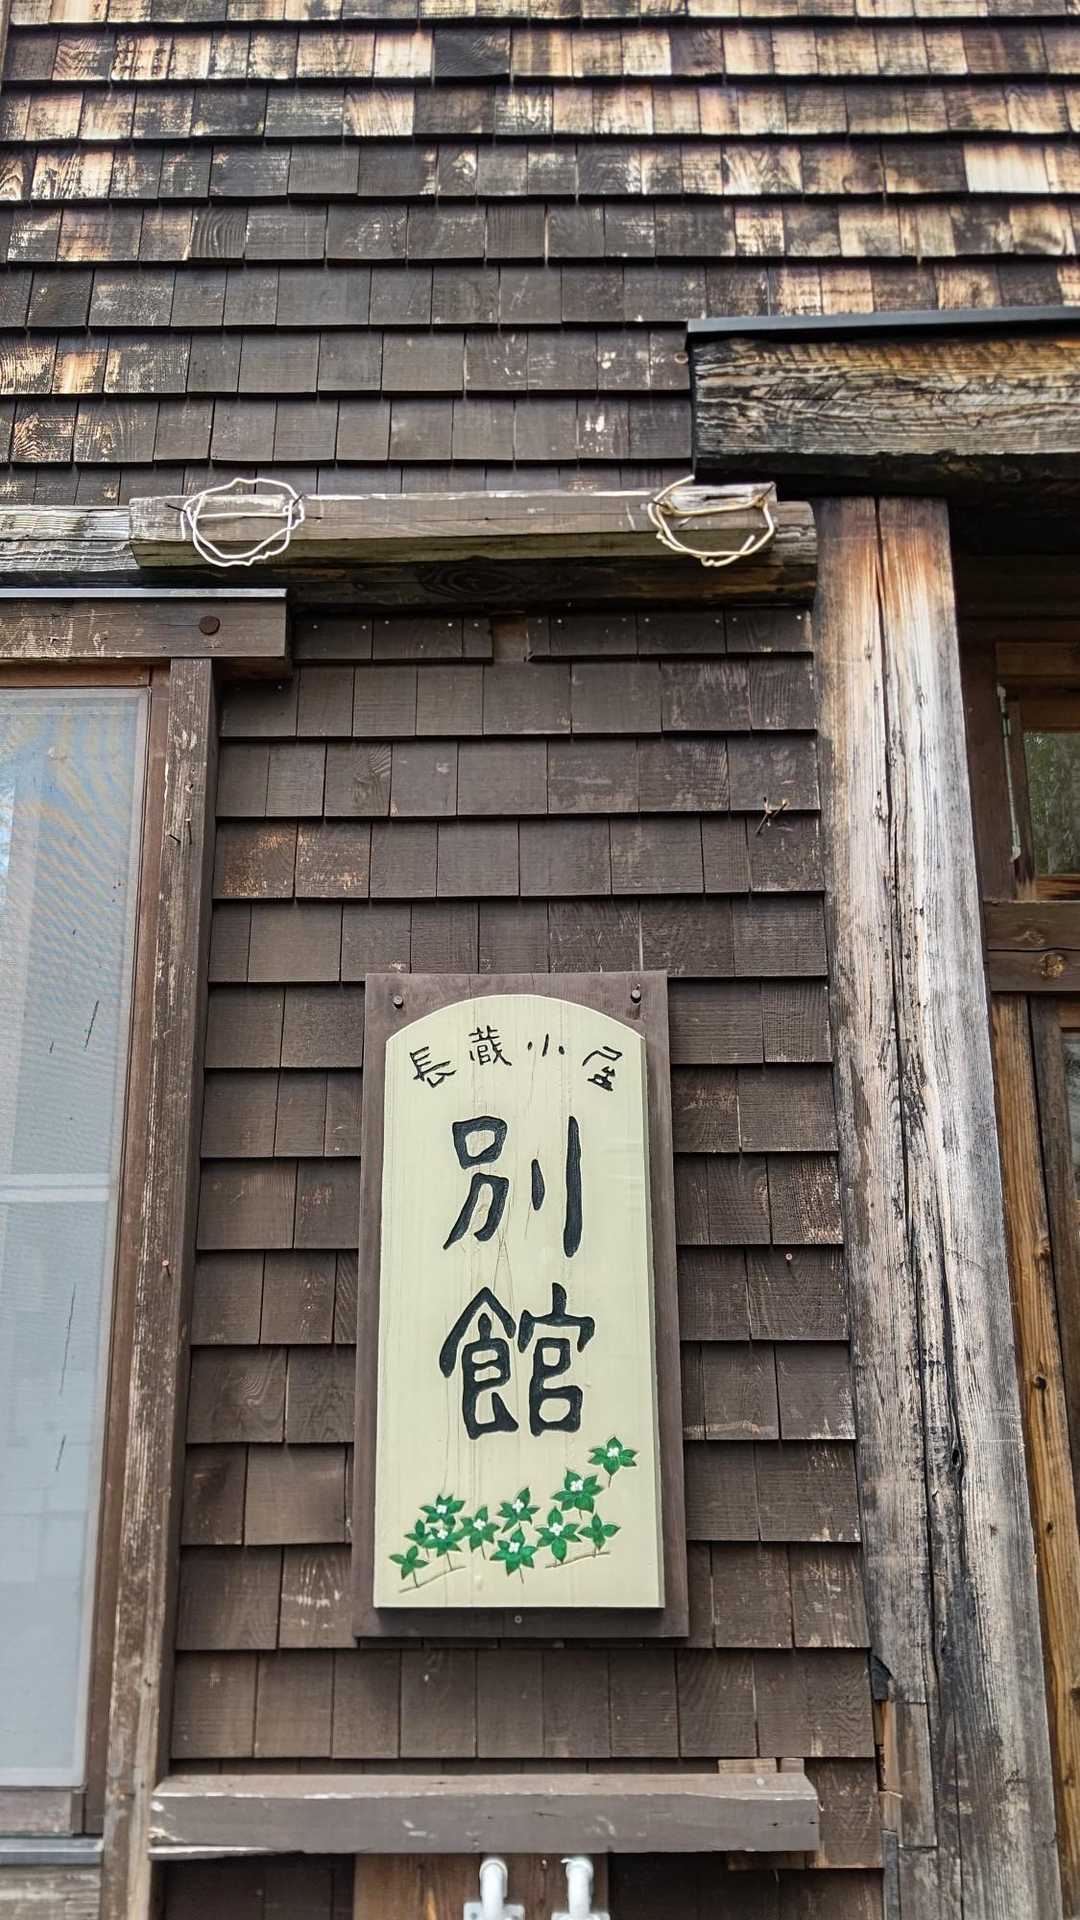 長蔵小屋
別館